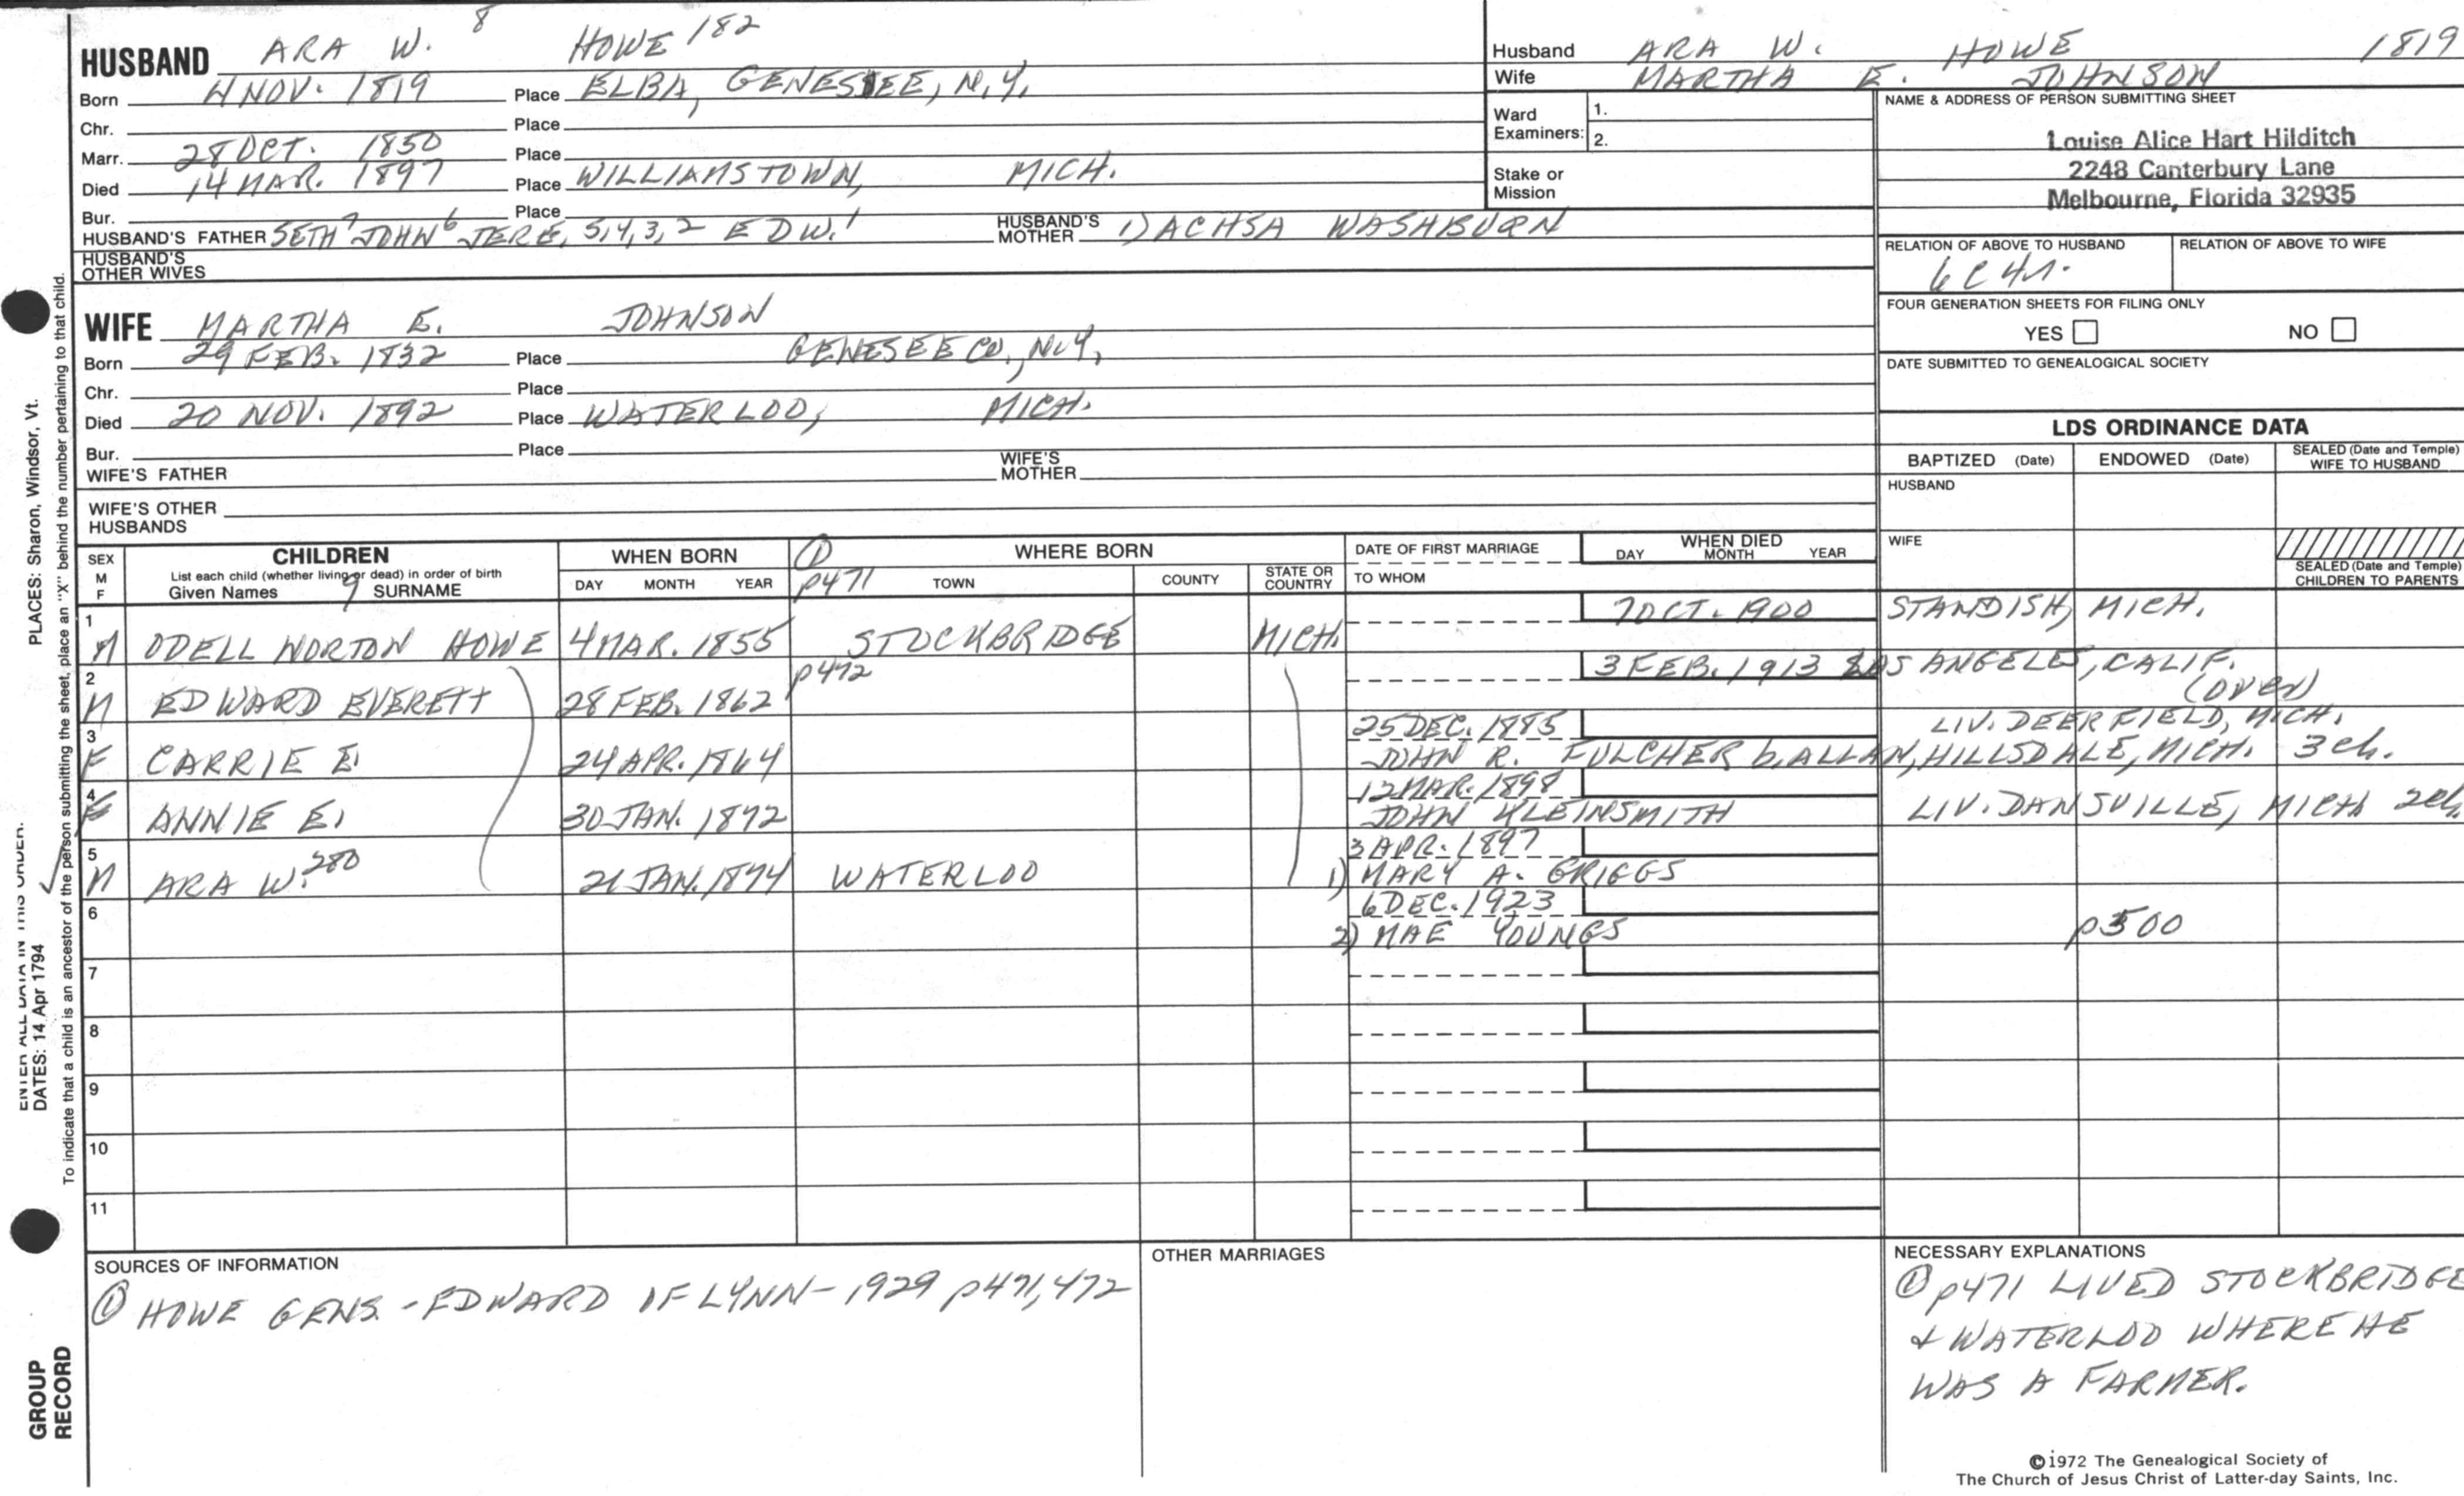 HUSBAND ARA W. 8 HOWE 182
Born 4 NOV. 1819 Place ELBA, GENESEE, N.Y.
Chr. Place
Marr. 28 OCT. 1850 Place
Died 14 MAR. 1897 Place WILLIAMSTOWN, MICH.
Bur. Place
HUSBAND'S FATHER SETH 7 JOHN 6 JERE, 5,4,3,2 EDW. 1 HUSBAND'S MOTHER 1) ACHSA WASHBURN
HUSBAND'S OTHER WIVES
WIFE MARTHA E. JOHNSON
Born 29 FEB. 1832 Place GENESEE CO., N.Y.
Chr. Place
Died 20 NOV. 1892 Place WATERLOO, MICH.
Bur. Place
WIFE'S FATHER WIFE'S MOTHER
WIFE'S OTHER HUSBANDS
Husband ARA W. HOWE 1819
Wife MARTHA E. JOHNSON
Ward Examiners: 1.
2.
Stake or Mission
NAME & ADDRESS OF PERSON SUBMITTING SHEET
Louise Alice Hart Hilditch
2248 Canterbury Lane
Melbourne, Florida 32935
RELATION OF ABOVE TO HUSBAND RELATION OF ABOVE TO WIFE
6C4r.
FOUR GENERATION SHEETS FOR FILING ONLY
YES NO
DATE SUBMITTED TO GENEALOGICAL SOCIETY
LDS ORDINANCE DATA
BAPTIZED (Date) ENDOWED (Date) SEALED (Date and Temple) WIFE TO HUSBAND
HUSBAND
WIFE
SEALED (Date and Temple) CHILDREN TO PARENTS
SEX M F CHILDREN WHEN BORN ① WHERE BORN DATE OF FIRST MARRIAGE WHEN DIED
List each child (whether living or dead) in order of birth
Given Names 9 SURNAME DAY MONTH YEAR p471 TOWN COUNTY STATE OR COUNTRY TO WHOM DAY MONTH YEAR
1 7 OCT. 1900 STANDISH, MICH.
M ODELL NORTON HOWE 4 MAR. 1855 STOCKBRIDGE MICH.
2 p472 3 FEB. 1913 LOS ANGELES, CALIF.
M EDWARD EVERETT 28 FEB. 1862 (over)
3 25 DEC. 1885 LIV. DEERFIELD, MICH.
F CARRIE E. 24 APR. 1864 JOHN R. FULCHER b. ALLAN, HILLSDALE, MICH. 3 ch.
4 12 MAR. 1898
F ANNIE E. 30 JAN. 1872 JOHN KLEINSMITH LIV. DANSVILLE, MICH. 2 ch.
5 3 APR. 1897
M ARA W. 280 21 JAN. 1874 WATERLOO 1) MARY A. GRIGGS
6 6 DEC. 1923
2) MAE YOUNGS p500
7
8
9
10
11
SOURCES OF INFORMATION
① HOWE GENS. - EDWARD OF LYNN - 1929 p471, 472
OTHER MARRIAGES
NECESSARY EXPLANATIONS
① p471 LIVED STOCKBRIDGE
& WATERLOO WHERE HE
WAS A FARMER.
©1972 The Genealogical Society of
The Church of Jesus Christ of Latter-day Saints, Inc.
ENTER ALL DATA IN THIS ORDER:
DATES: 14 Apr 1794
PLACES: Sharon, Windsor, Vt.
To indicate that a child is an ancestor of the person submitting the sheet, place an "X" behind the number pertaining to that child.
GROUP
RECORD